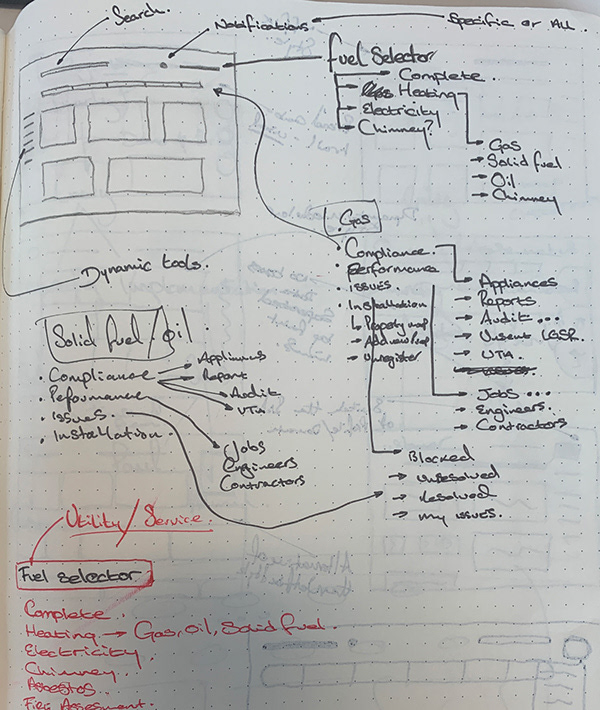 Search.
Notifications
Specific or All.
Fuel Selector
Complete.
Heating
Electricity
Chimney?
Gas
Solid fuel
Oil
Chimney
Gas
Compliance.
Performance
Issues.
Installation
Property map
Unregister
Appliances
Reports
Audit...
Unsent LGSR.
UTA.
Jobs...
Engineers.
Contractors
Blocked
Unresolved
Resolved
My issues.
Dynamic tools.
Solid fuel/Oil.
Compliance
Peformance
Issues
Installation.
Appliances
Report
Audit
UTA
Jobs
Engineers
Contractors
Utility/Service.
Fuel selector
Complete.
Heating → Gas, Oil, Solid fuel.
Electricity.
Chimney.
Asbestos.
Fire Assesment.